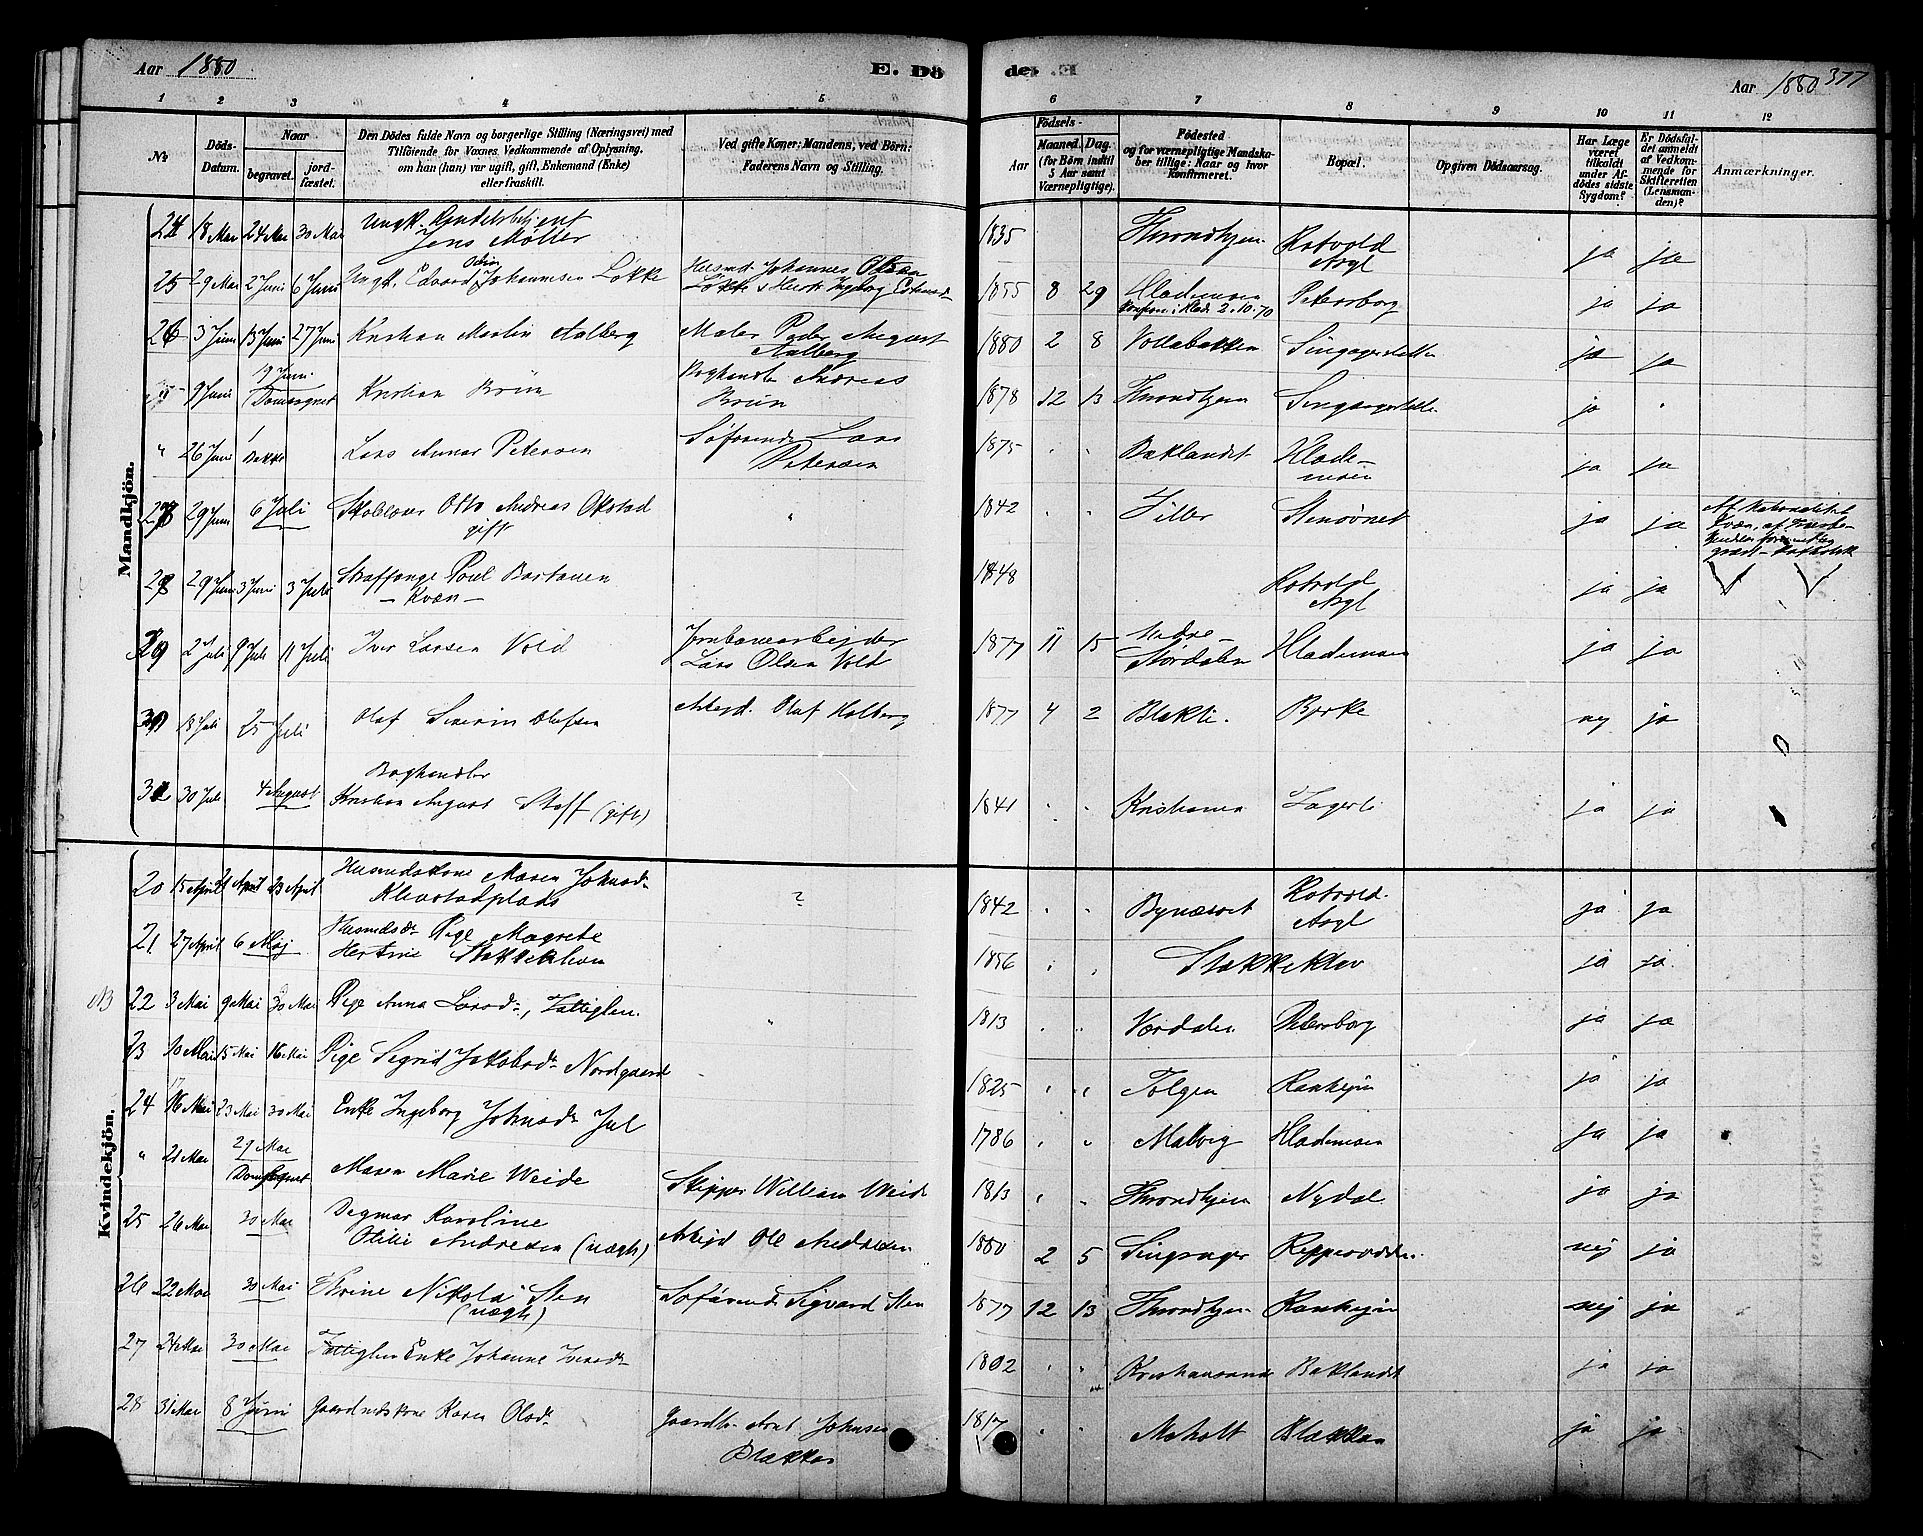 Aar 1880
E. Dö
de. E
Aar 1880 377
1 2 3 4 5 6 7 8 9 10 11 12
№
Döds-
Datum.
Naar
begravet.
jord-
fæstet.
Den Dödes fulde Navn og borgerlige Stilling (Næringsvei) med
Tilföiende for Voxnes Vedkommende af Oplysning,
om han (hun) var ugift, gift, Enkemand (Enke)
eller fraskilt.
Ved gifte Koner: Mandens, ved Börn:
Faderens Navn og Stilling.
Födsels-
Aar
Maaned. Dag.
(for Börn indtil
5 Aar samt
Værnepligtige).
Födested
og for værnepligtige Mandska-
ber tillige: Naar og hvor
Konfirmeret.
Bopæl.
Opgiven Dödsaarsag.
Har Læge
været
tilkaldt
under Af-
dödes sidste
Sygdom?
Er Dödsfal-
det anmeldt
af Vedkom-
mende for
Skifteretten
(Lensman-
den)?
Anmærkninger.
Mandkjön.
24 18 Mai 24 Mai 30 Mai Ungk.
Jens Möller 1835 Throndhjem Rotvold
Asyl ja ja
25 29 Mai 2 Juni 6 Juni Ungk. Edvard Johannesen Løkke Husmd. Johannes Olsen
Løkke 1855 8 29 Hlademoen Petersborg ja ja
Konfirm. i Hlade 2.10.70
26 3 Juni 13 Juni 27 Juni Kristian Martin Aalberg Maler Peder August
Aalberg 1880 2 8 Vollabakken ja ja
" 9 Juni 19 Juni
Domsognet Kristian Brün Boghandler Andreas
Brün 1878 12 13 Throndhjem ja "
" 26 Juni Bakke Lars Annar Petersen Lars
Petersen 1875 " " Baklandet Hlade-
moen ja ja
27 29 Juni 6 Juli Skolelærer Otto Andreas Okstad
gift " 1842 " " Tiller Stenövnet ja ja
28 29 Juni 3 Juni 3 Juli Straffange Poul Bartanen
- Kvæn - 1848 Rotvold
Asyl ja ja
Af Nationalitet
Kvæn, af
græsk-katholsk
29 2 Juli 9 Juli 11 Juli Iver Larsen Vold Jernbanearbejder
Lars Olsen Vold 1877 11 15 Nedre
Stördalen Hlademoen ja ja
30 13 Juli 25 Juli Olaf Severin Olafsen Arbejd. Olaf Holberg 1877 4 2 Blakli. Byrke nej ja
31 30 Juli 4 August Boghandler
Kristian August Hoff (gift) 1841 " " Kristiania Fagerli ja ja
Kvindekjön.
20 15 April 21 April 23 April Husmdskone Maren Johnsd.
plads ? 1842 " " Bynæsset Rotvold
Asyl ja ja
21 27 April 6 Maj Husmdsdr. Pige Magrete
Hertine 1856 " " ja ja
NB 22 3 Mai 9 Mai 30 Mai Pige Anna Larsd., Fattiglem. " 1813 " " Værdalen Petersborg ja ja
23 10 Mai 15 Mai 16 Mai Pige Sigrid Jakobsd. Nordgaard " 1825 " " Tolgen Ranhejm ja ja
24 16 Mai 23 Mai 30 Mai Enke Ingeborg Johnsd. Jul 1786 " " Malvig Hlademoen ja ja
" 21 Mai 29 Mai
Domsognet Maren Marie Weide Skipper William Weide 1813 " " Throndhjem Nydal ja ja
25 26 Mai 30 Mai Dagmar Karoline
Otilie Andresen (uægte) Arbejd. Ole Andresen 1880 2 5 Singsager nej ja
26 22 Mai 30 Mai Thrine Nikolai Sten
(uægte) Söfarende Sigvard Sten 1877 12 13 Throndhjem Ranhejm nej ja
27 24 Mai 30 Mai Fattiglem Enke Johanne Iversd. 1802 " " Kristiansund Baklandet ja ja
28 31 Mai 8 Juni Gaardmdskone Karen Olsd. Gaardbr. Arnt Johnsen
Blakkan 1817 " " Moholt Blakkan ja ja